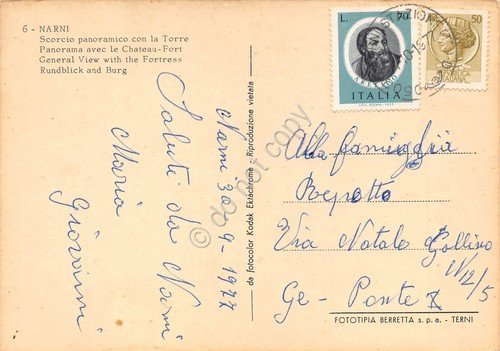 6 - NARNI
Scorcio panoramico con la Torre
Panorama avec le Chateau-Fort
General View with the Fortress
Rundblick and Burg
L. 70
ITALIA
50
Narni 30-9-1977
Saluti da Narni
Maria
Giovanni
da fotocolor Kodak Ektachrome - Riproduzione vietata
do not copy
Alla famiglia
Repetto
Via Natale Gallino
N 12/5
Ge - Ponte X
FOTOTIPIA BERRETTA s.p.a. - TERNI